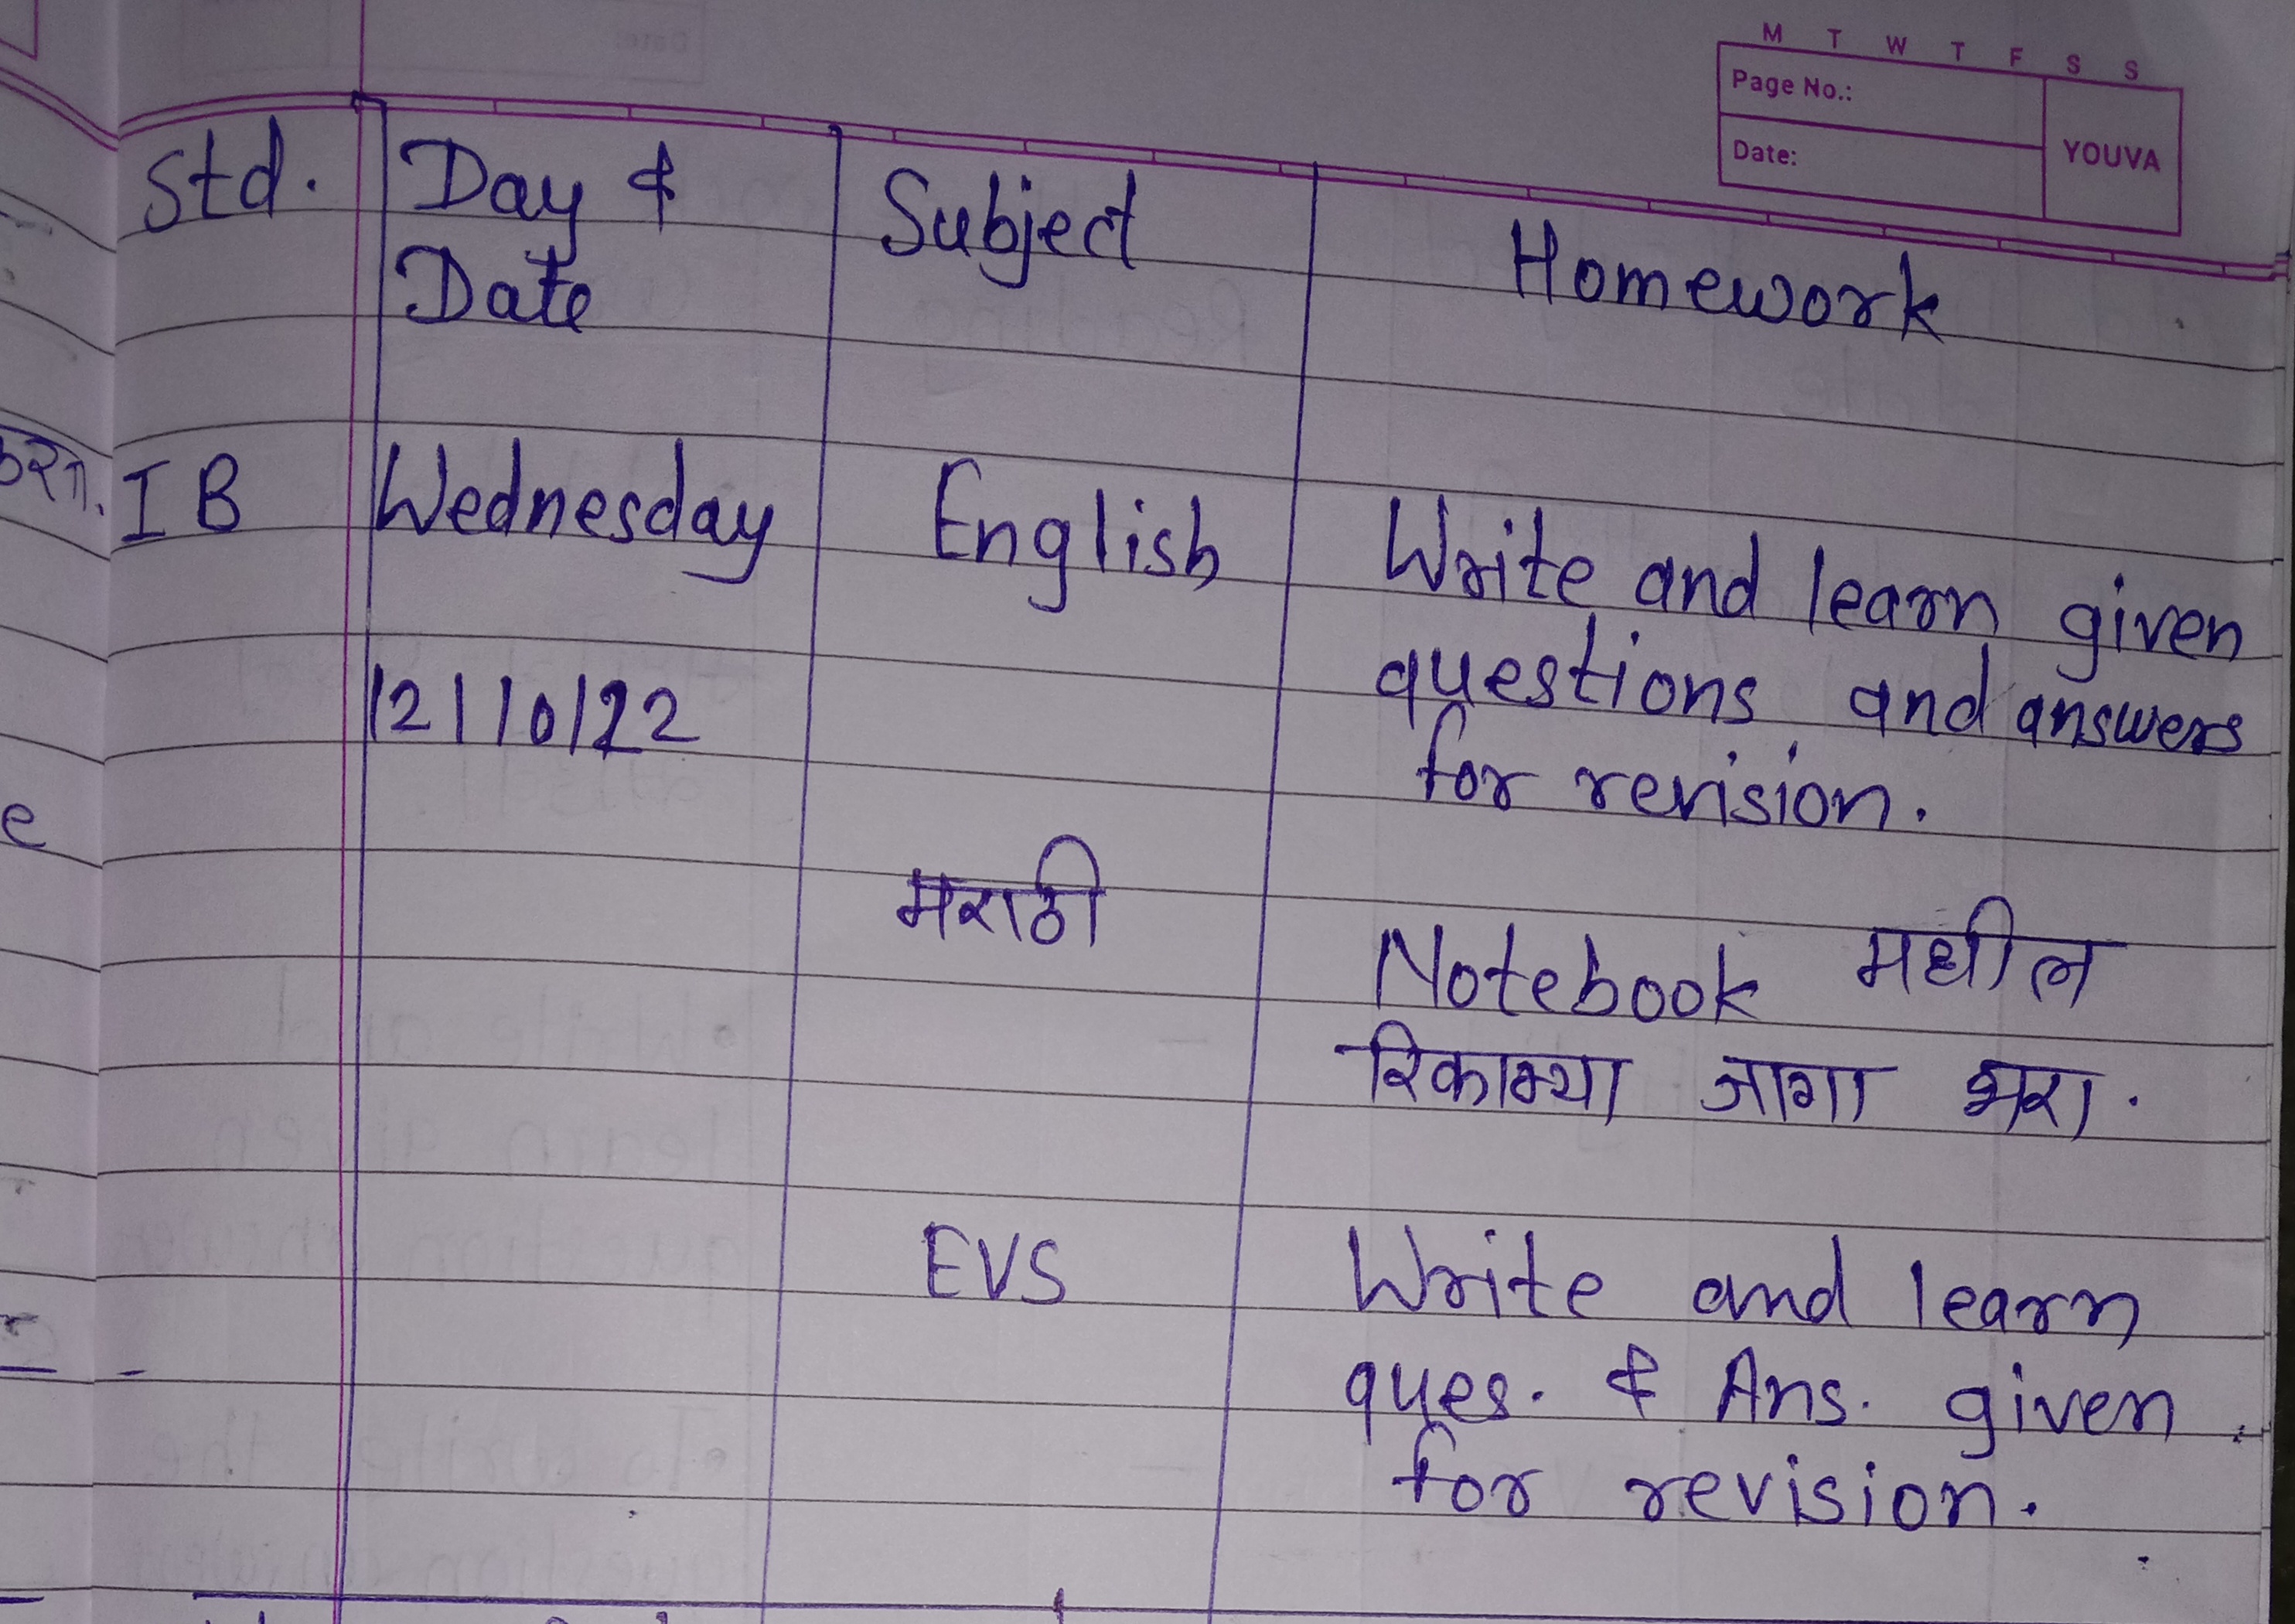 M T W T F S S
Page No.:
Date:
YOUVA
Std. Day & Subject Homework
Date
I B Wednesday English Write and learn given
12/10/22 questions and answers
for revision.
मराठी Notebook मधील
रिकाम्या जागा भरा.
EVS Write and learn
ques. & Ans. given
for revision.